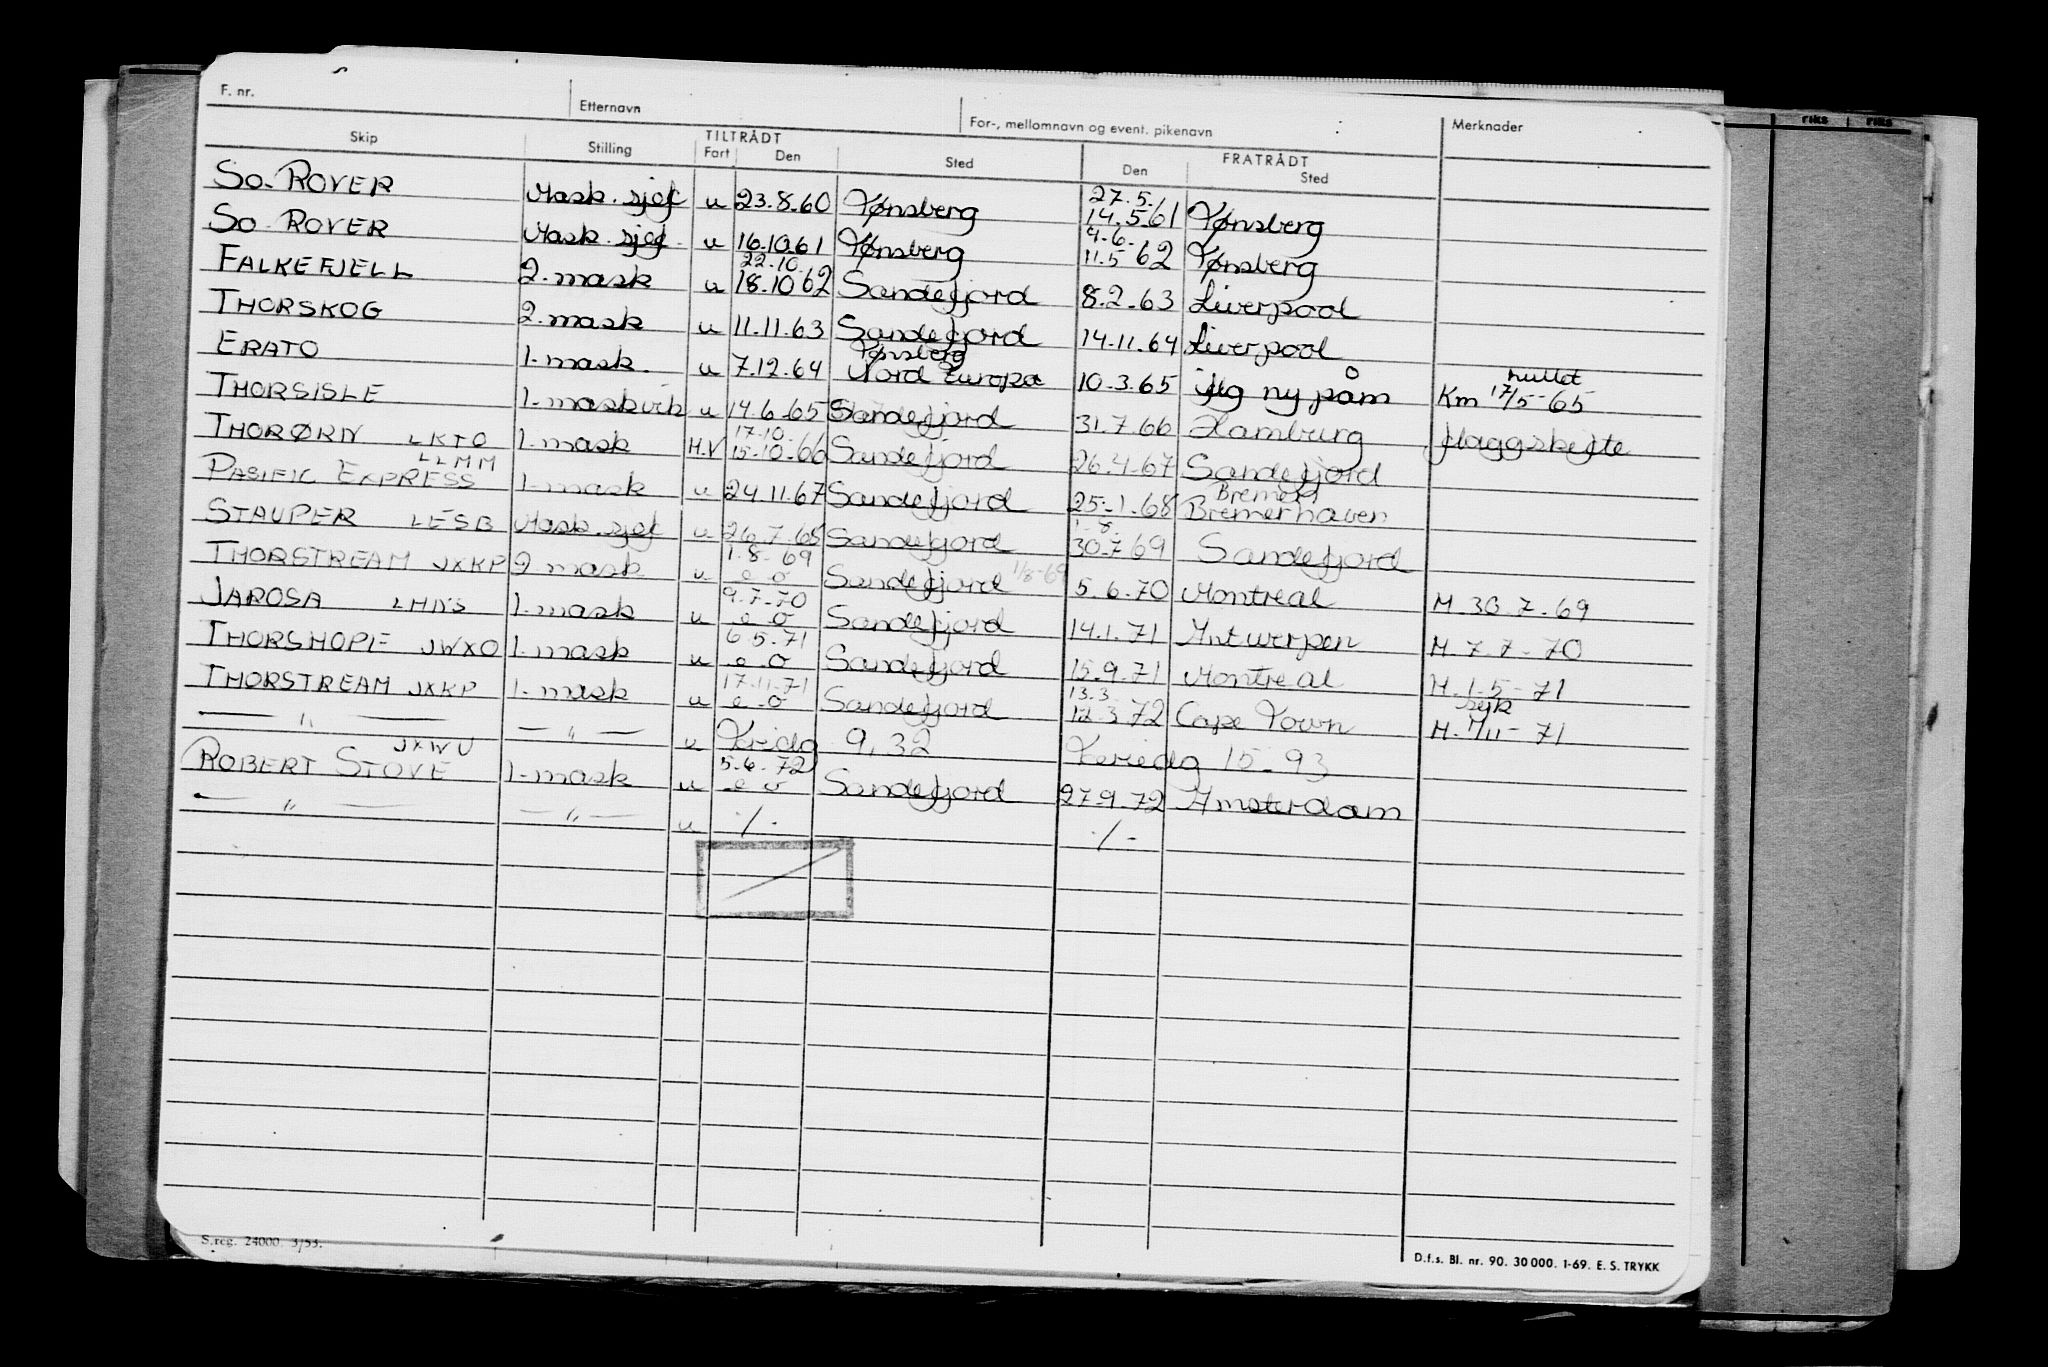 F. nr. Etternavn For-, mellomnavn og event. pikenavn Merknader
Skip Stilling TILTRÅDT Fart Den Sted FRATRÅDT Den Sted
So. ROVER Mask. sjef u 23.8.60 Tønsberg 27.5. 14.5.61 Tønsberg
So ROVER Mask. sjef u 16.10.61 Tønsberg 4.6. 11.5 62 Tønsberg
FALKEFJELL 2. mask u 22.10. 18.10 62 Sandefjord 8.2.63 Liverpool
THORSKOG 2. mask u 11.11.63 Sandefjord 14.11.64 Liverpool
ERATO 1. mask. u 7.12.64 Tønsberg Nord Europa 10.3.65 ny påm Km 17/5-65 nullet
THORSISLE 1. maskvik u 14.6.65 Sandefjord 31.7.66 Hamburg flaggskifte
THORØRN LKTO 1. mask H.V 17.10. 15.10.66 Sandefjord 26.4.67 Sandefjord
PASIFIC EXPRESS LLMM 1. mask u 24.11.67 Sandefjord 25.1.68 Bremen Bremerhaven
STAUPER LESB Mask. sjef u 26.7.65 Sandefjord 1.8. 30.7 69 Sandefjord
THORSTREAM JXKP 2 mask u 1.8.69 e o Sandefjord 1/8-69 5.6.70 Montreal M. 30.7.69
JAROSA LHNS 1. mask u 9.7.70 e o Sandefjord 14.1.71 Antwerpen M. 7.7.70
THORSHOPE JWXO 1. mask u 6.5.71 e o Sandefjord 15.9.71 Montreal M. 1.5-71
THORSTREAM JXKP 1. mask u 17.11.71 e o Sandefjord 13.3 12.3.72 Cape Town syk M. 1/11-71
— " — — " — u Veridg 9.32 Veriedg 15-93
ROBERT STOVE JXWU 1. mask u 5.6.72 e o Sandefjord 27.9.72 Amsterdam
— " — — " — u ./. ./-
S.reg. 24000. 3/53.
D.f.s. Bl. nr. 90. 30 000. 1-69. E. S. TRYKK
riks riks